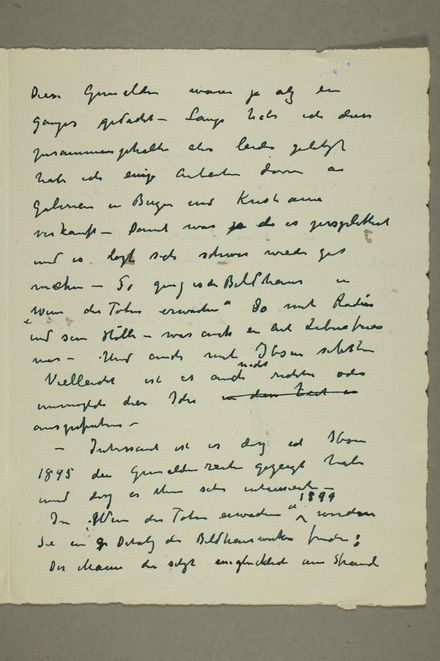 Diese Gemälden waren ja als ein
ganzes gedacht – Lange habe ich dies
zusammengehalten aber leider
habe ich einige Arbeiten davon an
Galerien in Bergen und Kristiania
verkauft – Damit war ja das es zersplittert
und es lässt sich schwer wieder gut
machen – So ging es der Bildhauer in
„Wenn die Toten erwachen" So mit Rodin
und sein Hölle – was auch en Art Lebensfries
war – Und auch mit Ibsen selbst
Vielleicht ist es auch nicht richtig oder
unmöglich diese Idee in dem
auszuführen –
– Interessant ist es dass ich Ibsen
1895 die Gemälden gezeigt habe
und dass es ihm sehr interessierte –
In „Wenn die Toten erwachen" 1899 werden
Sie ein Detalj des Bildhauerwerkes finden:
Der Mann der sitzt unglücklich am Strand